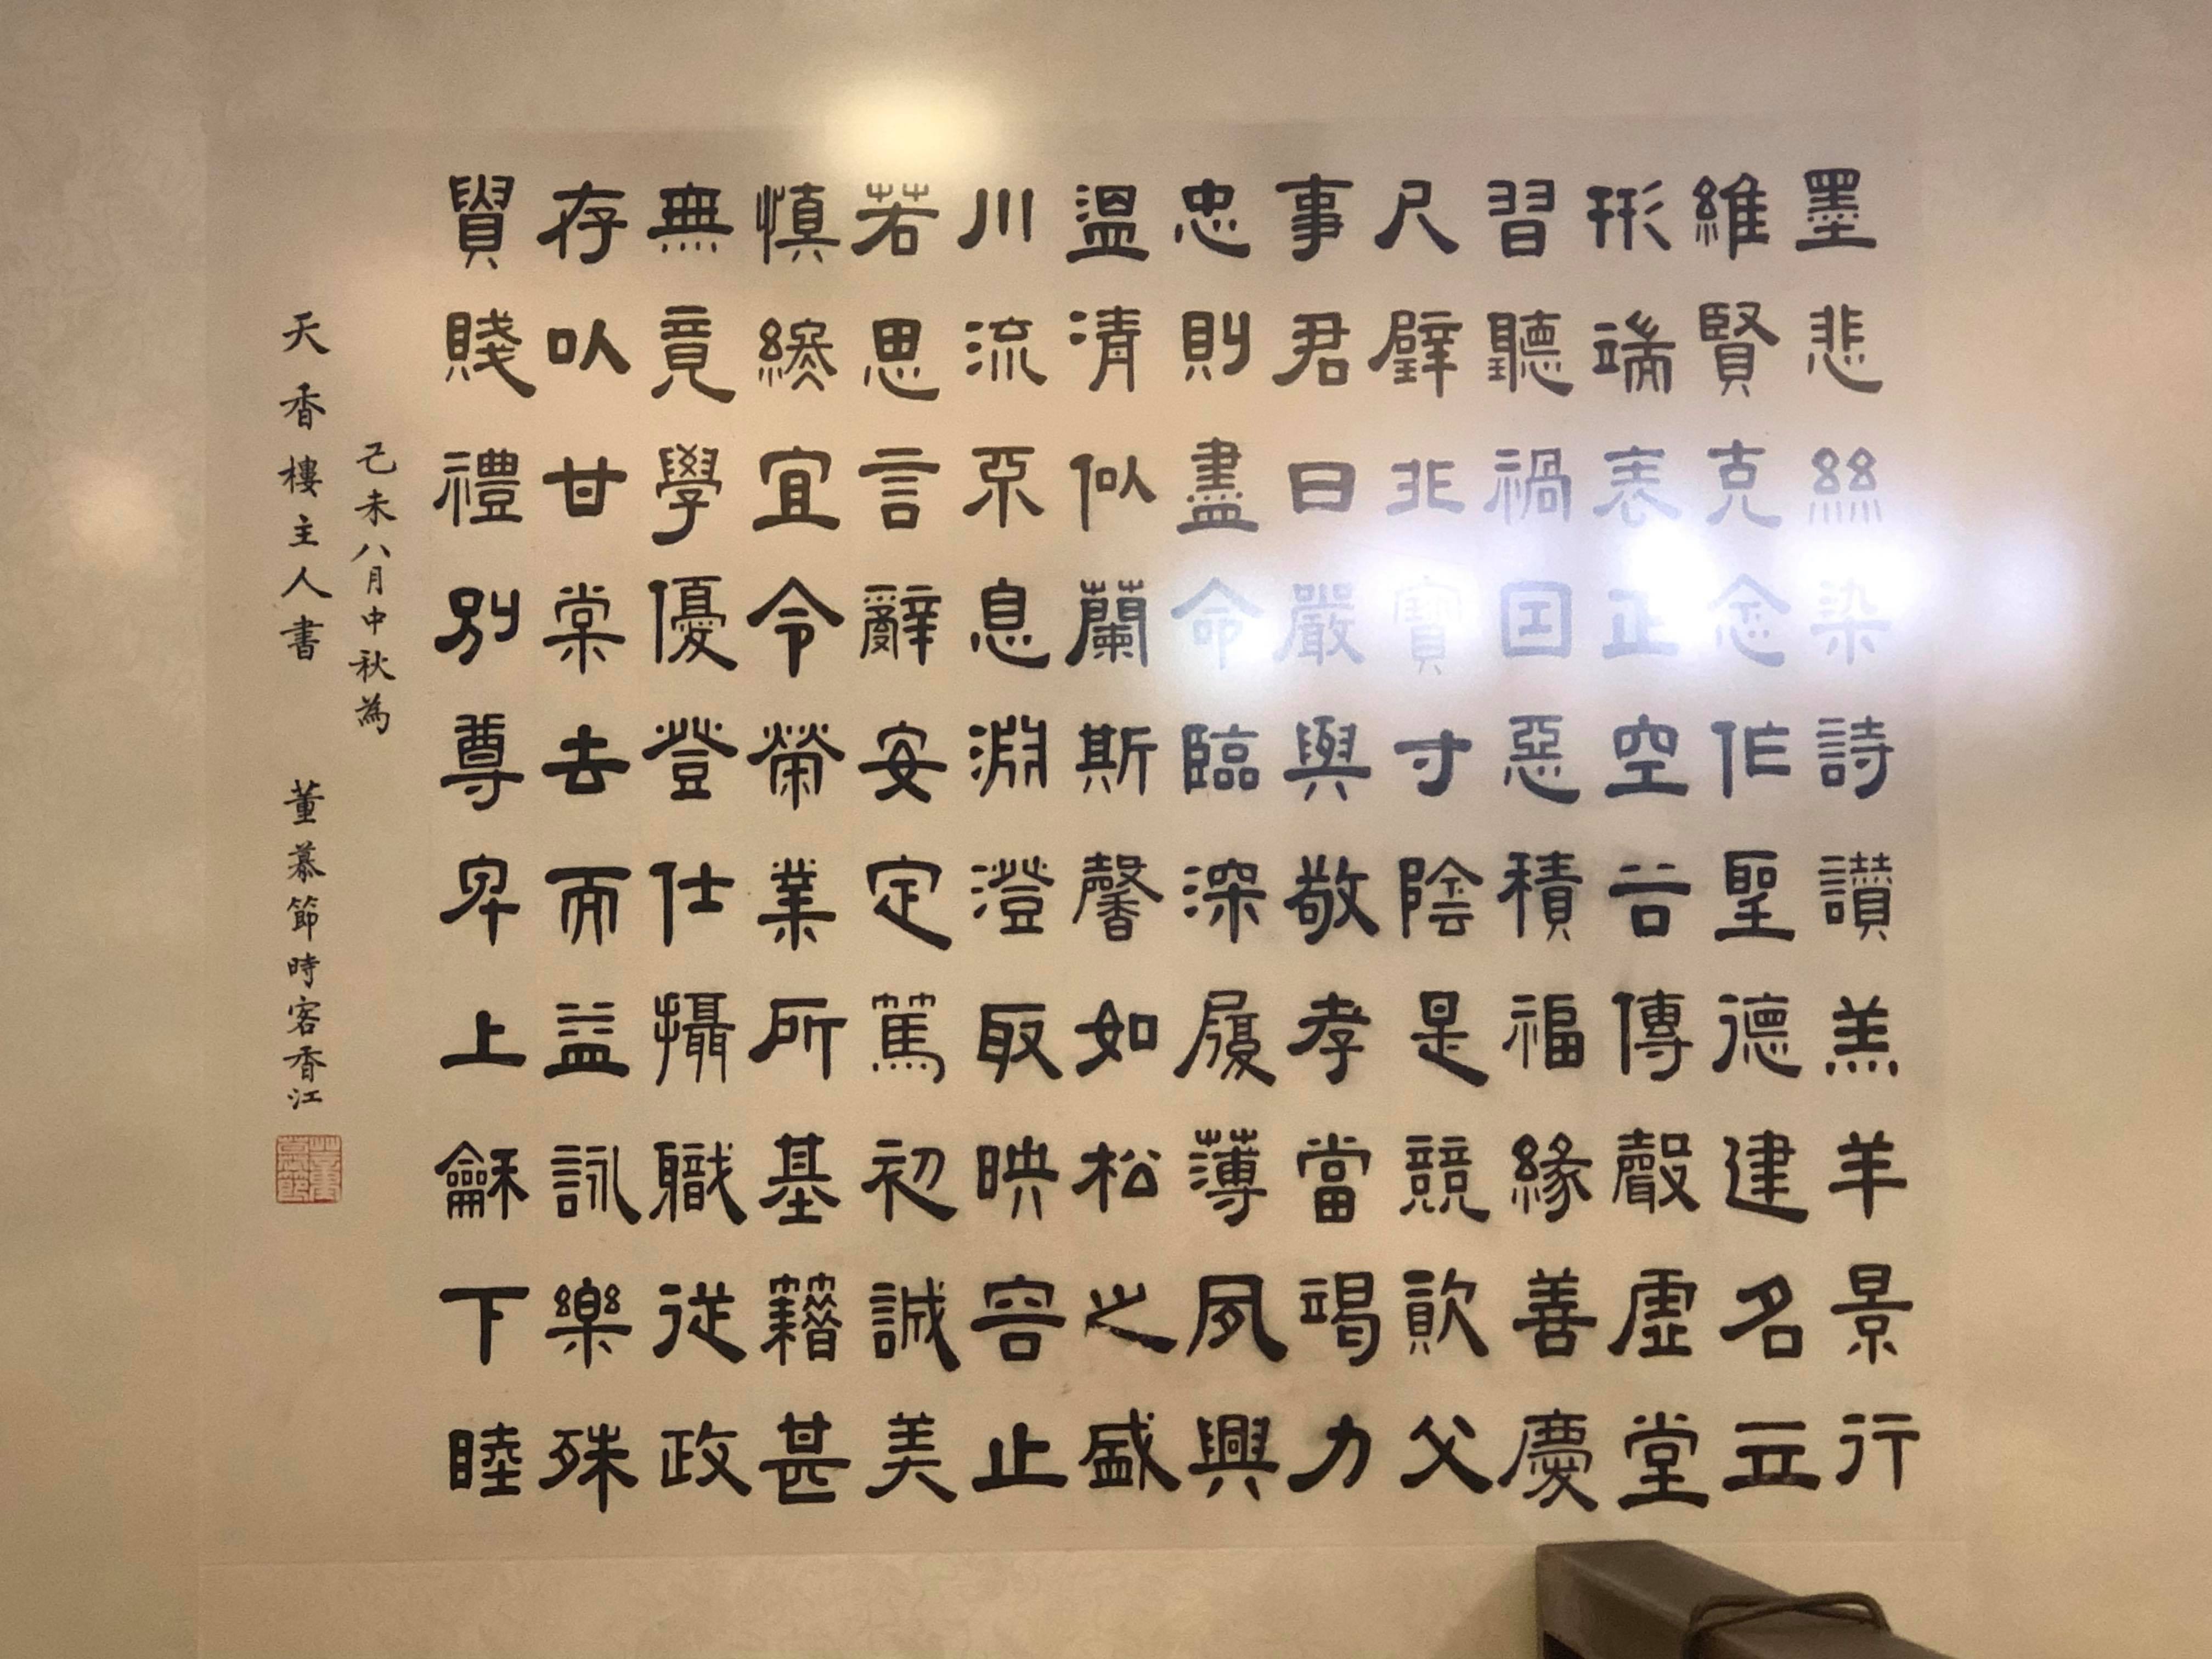 墨悲絲染詩讚羔羊景行
維賢克念作聖德建名立
形端表正空谷傳聲虛堂
習聽禍因惡積福緣善慶
尺璧非寶寸陰是競資父
事君曰嚴與敬孝當竭力
忠則盡命臨深履薄夙興
溫清似蘭斯馨如松之盛
川流不息淵澄取映容止
若思言辭安定篤初誠美
慎終宜令榮業所基籍甚
無竟學優登仕攝職從政
存以甘棠去而益詠樂殊
貴賤禮別尊卑上龢下睦
己未八月中秋為
天香樓主人書 董慕節時客香江